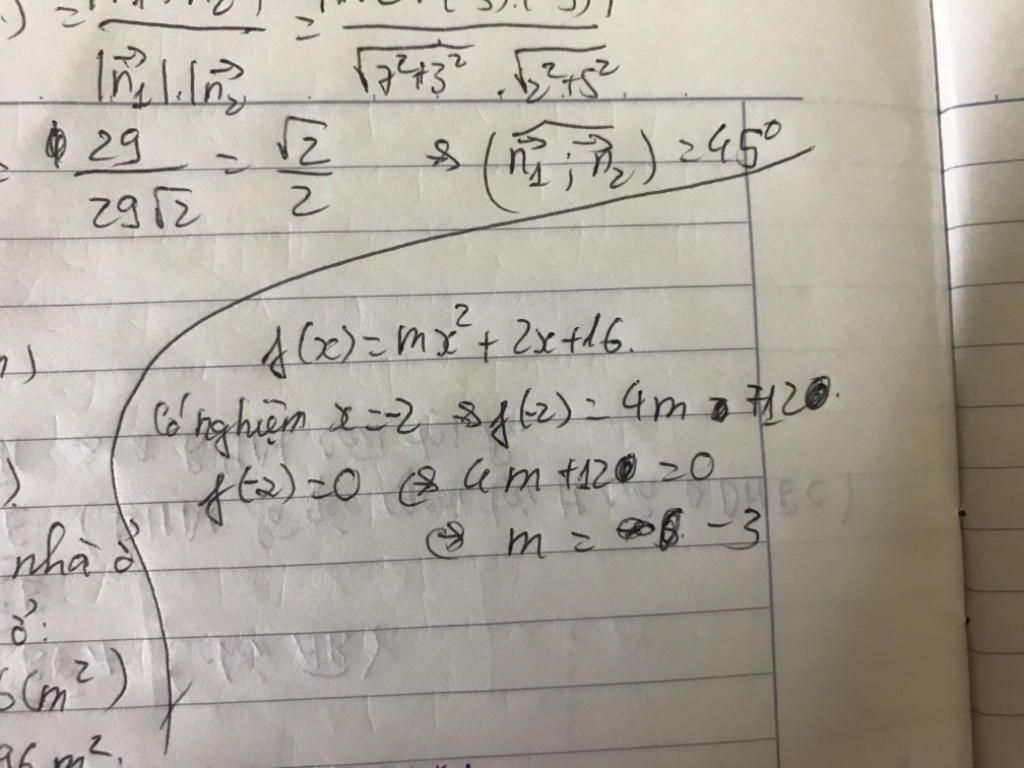 |n₁⃗|.|n₂⃗| √7²+3² . √2²+5²
29/29√2 = √2/2 ⇒ (n₁⃗ ; n₂⃗) = 45°
f(x) = mx² + 2x + 16.
Có nghiệm x = -2 ⇒ f(-2) = 4m +12.
f(-2) = 0 ⇔ 4m + 12 = 0
⇔ m = -3
nhà ở
ở:
(m²)
96 m².